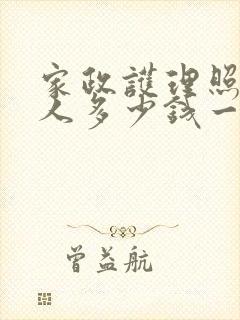 家政護理照
人多少錢一
曾益航